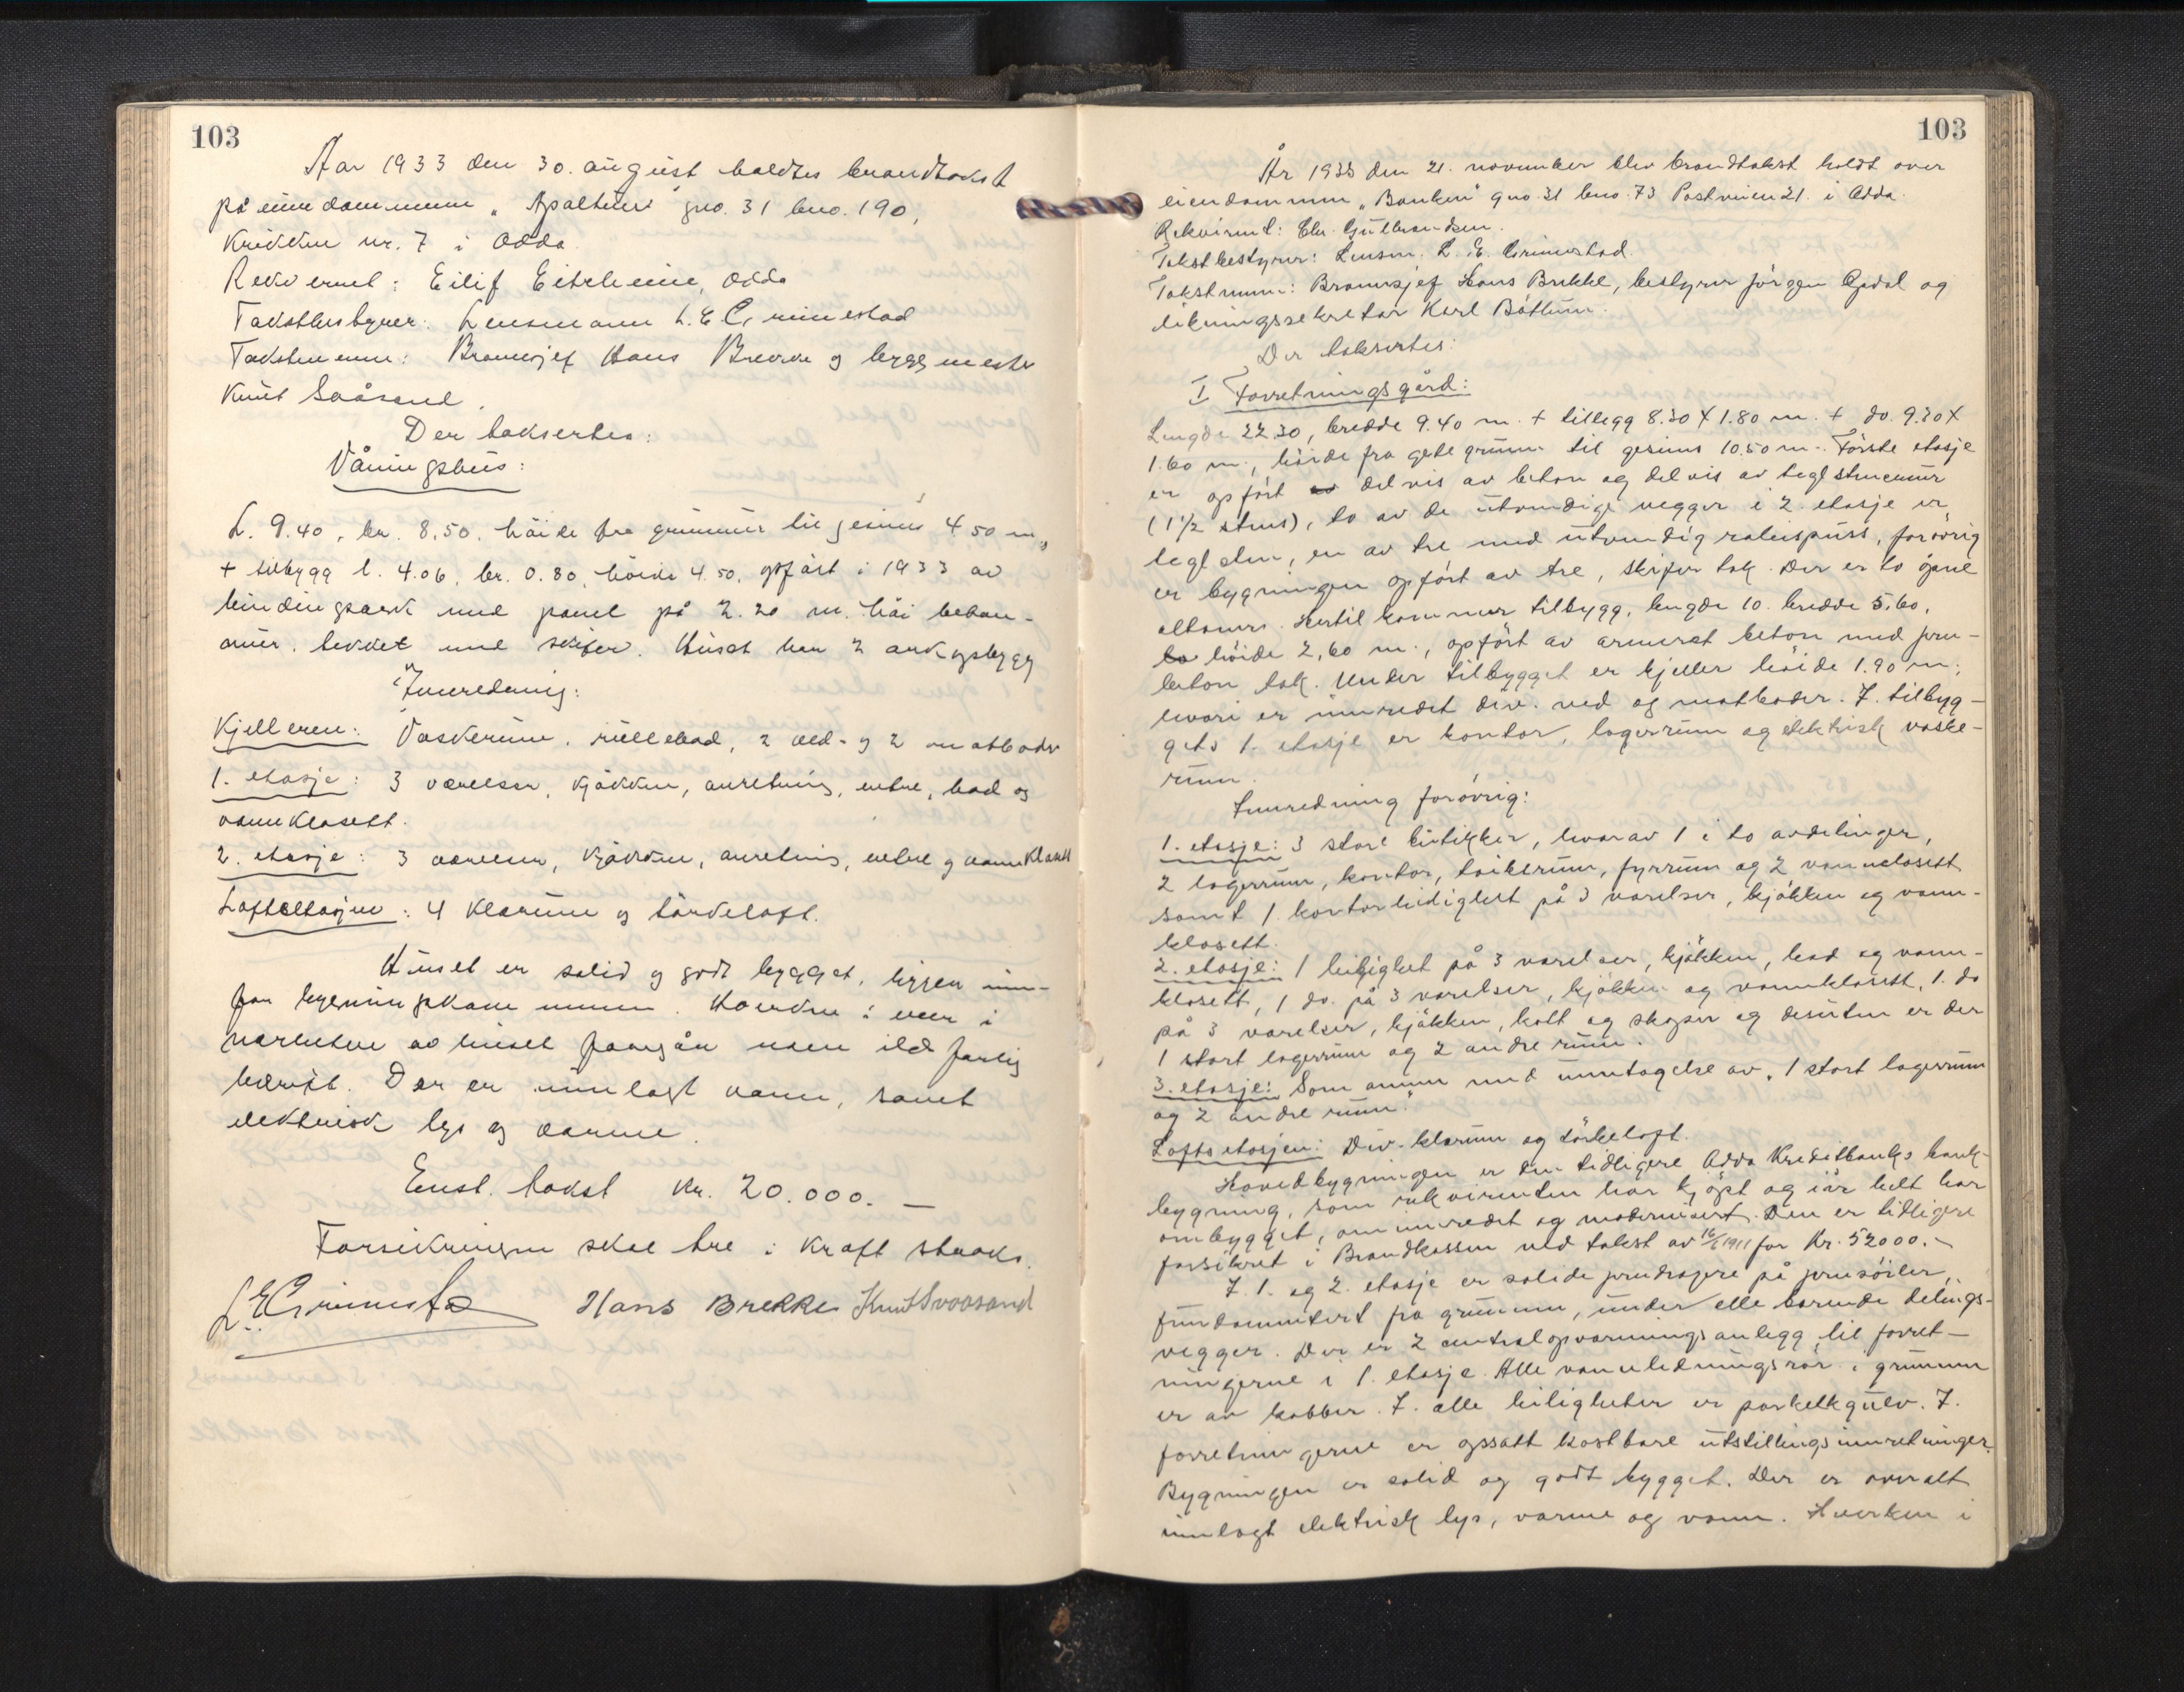 103
Aar 1933 den 30. august holdtes brandtakst
på eiendommen „Apaltun" gno. 31 bno. 190,
Krikken nr. 7 i Odda.
Rekvirent: Eilif Eitrheim, Odda
Takstbestyrer: Lensmann L. E. Grimestad
Takstmenn: Brannsjef Hans Brekke og byggmester
Knut Svåsand.
Der taksertes:
Våningshus:
L. 9.40, br. 8.50. höide fra grunnmur til gesims 4 50 m,
+ tilbygg l. 4.06, br. 0.80, höide 4.50, opfört i 1933 av
bindingsverk med panel på 2.20 m. höi beton-
mur, tekket med skifer. Huset har 2 arkopbygg
Innredning:
Kjelleren: Vaskerum, rullebod, 2 ved- og 2 matboder
1. etasje: 3 værelser, kjökken, anretning, entre, bad og
vannklosett.
2. etasje: 3 værelser, kjökken, anretning, entre og vannklosett
Loftsetasjen: 4 klærum og törkeloft.
Huset er solid og godt bygget, ligger inn-
for bygningskommunen. Hverken i eller i
nærheten av huset foregår noen ildsfarlig
bedrift. Der er innlagt vann, samt
elektrisk lys og varme.
Enst. takst kr. 20.000. —
Forsikringen skal tre i kraft straks.
L. E. Grimestad Hans Brekke Knut Svoosand
103
År 1933 den 21. november blev brandtakst holdt over
eiendommen „Banken" gno. 31 bno. 73 Postveien 21. i Odda.
Rekvirent: Chr. Gulbrandsen.
Takstbestyrer: Lensm. L. E. Grimestad.
Takstmenn: Brannsjef Hans Brekke, bestyrer Jörgen Opdal og
likningssekretær Karl Böttum.
Der taksertes:
I Forretningsgård:
Lengde 22.30, bredde 9.40 m. + tillegg 8.30 X 1.80 m. + do. 9.30 X
1.60 m., höide fra gategrunn til gesims 10.50 m. Förste etasje
er opfört av delvis av beton og delvis av teglstensmur
(1½ stens), to av de utvendige vegger i 2. etasje er
teglsten, en av tre med utvendig rabitzpuss, forövrig
er bygningen opfört av tre, skifer tak. Der er to åpne
altaner. Hertil kommer tilbygg, lengde 10. bredde 5.60,
höide 2,60 m., opfört av armeret beton med jern-
beton tak. Under tilbygget er kjeller höide 1.90 m.,
hvori er innredet div. ved og matboder. I tilbyg-
gets 1. etasje er kontor, lagerrum og elektrisk vaske-
rum.
Innredning forövrig:
1. etasje: 3 store butikker, hvorav 1 i to avdelinger,
2 lagerrum, kontor, toiletrum, fyrrum og 2 vannclosett
samt 1 kontorleilighet på 3 værelser, kjökken og vann-
klosett.
2. etasje: 1 leilighet på 3 værelser, kjökken, bad og vann-
klosett, 1 do. på 3 værelser, kjökken og vannklosett, 1. do
på 3 værelser, kjökken, kott og skaper og desuten er der
1 stort lagerrum og 2 andre rum.
3. etasje: Som annen med unntagelse av „1 stort lagerrum
og 2 andre rum."
Loftsetasjen: Div. klærum og törkeloft.
Hovedbygningen er den tidligere Odda Kreditbanks bank-
bygning, som rekvirenten har kjöpt og iår helt har
ombygget, ominnredet og modernisert. Den er tidligere
forsikret i Brandkassen ved takst av 16/6 1911 for Kr. 52000.-
I 1. og 2. etasje er solide jerndragere på jernsöiler,
fundamentert fra grunnen, under alle bærende delings-
vegger. Der er 2 centralopvarmingsanlegg til forret-
ningerne i 1. etasje. Alle vannledningsrör i grunnen
er av kobber. I alle leiligheter er parkettgulv. I
forretningerne er opsatt kostbare utstillingsinnretninger.
Bygningen er solid og godt bygget. Der er overalt
innlagt elektrisk lys, varme og vann. Hverken i